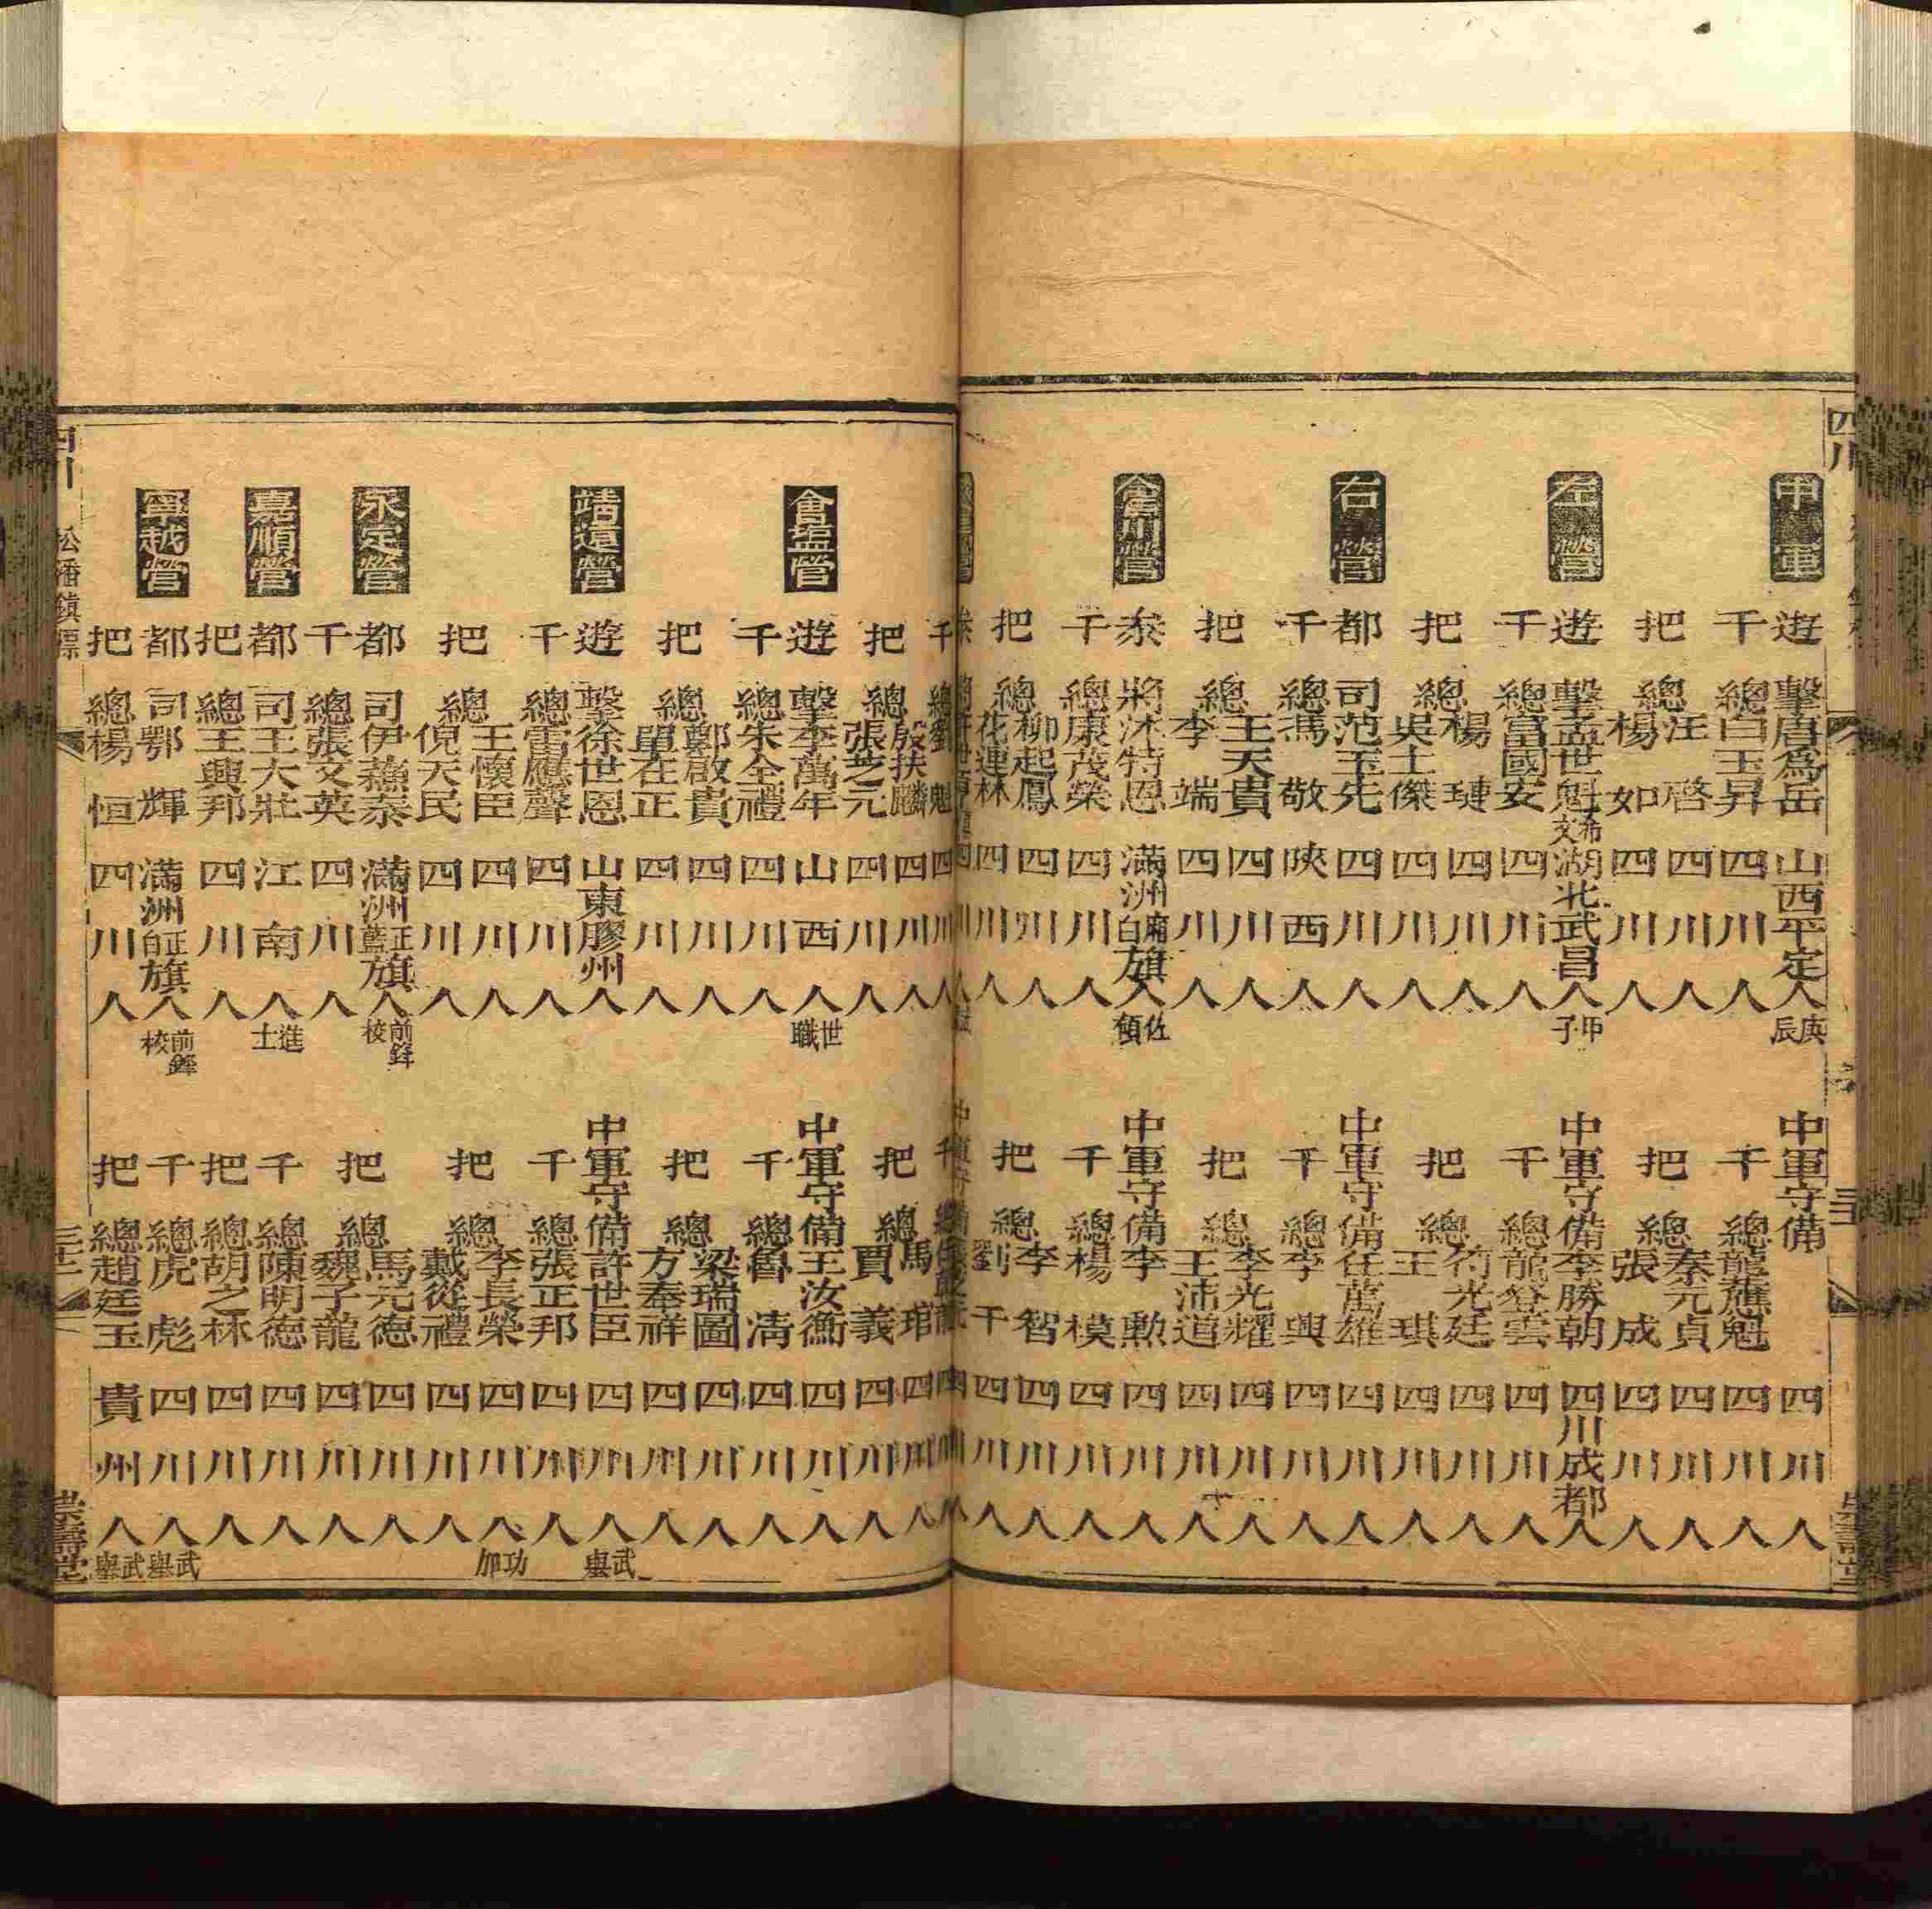 四川
中軍
遊擊唐爲岳山西平定人庚辰
千總白玉昇四川人
把總汪啓四川人
楊如四川人
左營
遊擊孟世魁希文湖北武昌人甲子
千總富國安四川人
把總楊璉四川人
吳士傑四川人
右營
都司范玉先四川人
千總馮敬陝西人
把總王天貴四川人
李端四川人
會川營
叅將沐特恩滿洲廂白旗人佐領
千總康茂榮四川人
把總柳起鳳四川人
花連林四川人
中軍守備四川人
千總龍應魁四川人
把總秦元貞四川人
張成四川人
中軍守備李勝朝四川成都人
千總龍登雲四川人
把總符光廷四川人
王琪四川人
中軍守備任萬雄四川人
千總李興四川人
把總李光耀四川人
王沛道四川人
中軍守備李勲四川人
千總楊模四川人
把總李智四川人
劉干四川人
千總劉魁四川人
把總殷扶麟四川人
張芝元四川人
會塩營
遊擊李萬年山西人世職
千總朱全禮四川人
把總鄭啟貴四川人
單在正四川人
靖遠營
遊擊徐世恩山東膠州人
千總雷應聲四川人
把總王懷臣四川人
倪天民四川人
永定營
都司伊蘇泰滿洲正藍旗人前鋒校
千總張文英四川人
嘉順營
都司王大壯江南人進士
把總王興邦四川人
寧越營
都司鄂輝滿洲正白旗人前鋒校
把總楊恒四川人
把總馬琯四川人
賈義四川人
中軍守備王汝衡四川人
千總魯淸四川人
把總梁瑞圖四川人
方奉祥四川人
中軍守備許世臣四川人武舉
千總張正邦四川人
把總李長榮四川人功加
戴從禮四川人
把總馬元德四川人
魏子龍四川人
千總陳明德四川人
把總胡之林四川人
千總虎彪四川人武舉
把總趙廷玉貴州人武舉
四川
松潘鎮標
崇壽堂